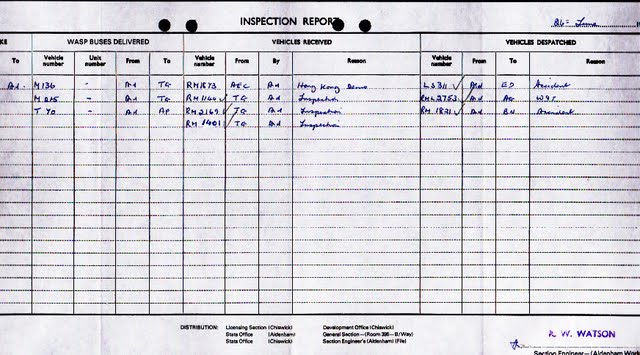 INSPECTION REPORT
WASP BUSES DELIVERED VEHICLES RECEIVED VEHICLES DESPATCHED
To Vehicle number Unit number From To Vehicle number From By Reason Vehicle number From To Reason
Ad. M 136 - Ad TG RM1873 AEC Ad Hong Kong Demo LS311 ✓ Ad ED Accident
M 815 - Ad TG RM1164 ✓ TG Ad Inspection RML2753 ✓ Ad AG
T 70 - Ad AP RM2169 ✓ TG Ad Inspection RM 1821 ✓ Ad BN Accident
RM 1401 ✓ TG Ad Inspection
DISTRIBUTION: Licensing Section (Chiswick) Development Office (Chiswick)
State Office (Aldenham) General Section - (Room 395 - B/Way)
State Office (Chiswick) Section Engineer's (Aldenham) (File)
R. W. WATSON
Section Engineer - (Aldenham Work